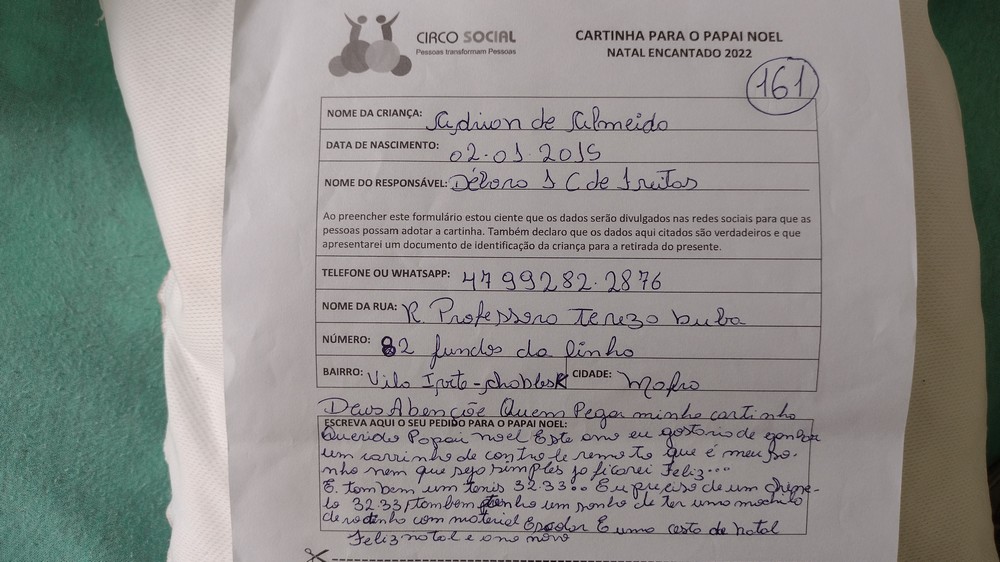 CIRCO SOCIAL
Pessoas transformam Pessoas
CARTINHA PARA O PAPAI NOEL
NATAL ENCANTADO 2022
161
NOME DA CRIANÇA: Adrion de Almeida
DATA DE NASCIMENTO: 02.01.2015
NOME DO RESPONSÁVEL: Débora J C de Freitas
Ao preencher este formulário estou ciente que os dados serão divulgados nas redes sociais para que as
pessoas possam adotar a cartinha. Também declaro que os dados aqui citados são verdadeiros e que
apresentarei um documento de identificação da criança para a retirada do presente.
TELEFONE OU WHATSAPP: 47 99282.2876
NOME DA RUA: R. Professora Tereza buba
NÚMERO: 82 fundos da linha
BAIRRO: Vila CIDADE: Mafra
Deus Abençõe Quem Pegar minha cartinha
ESCREVA AQUI O SEU PEDIDO PARA O PAPAI NOEL:
Querido Papai noel Este ano eu gostaria de ganhar
um carrinho de controle remoto que é meu so-
nho nem que seja simples ja ficarei Feliz...
E. tombem um tenis 32.33.. Eu preciso de um chine-
lo 32.33, tombem tenho um sonho de ter uma mochila
de rodinha com material E uma cesta de natal
Feliz natal e ano novo